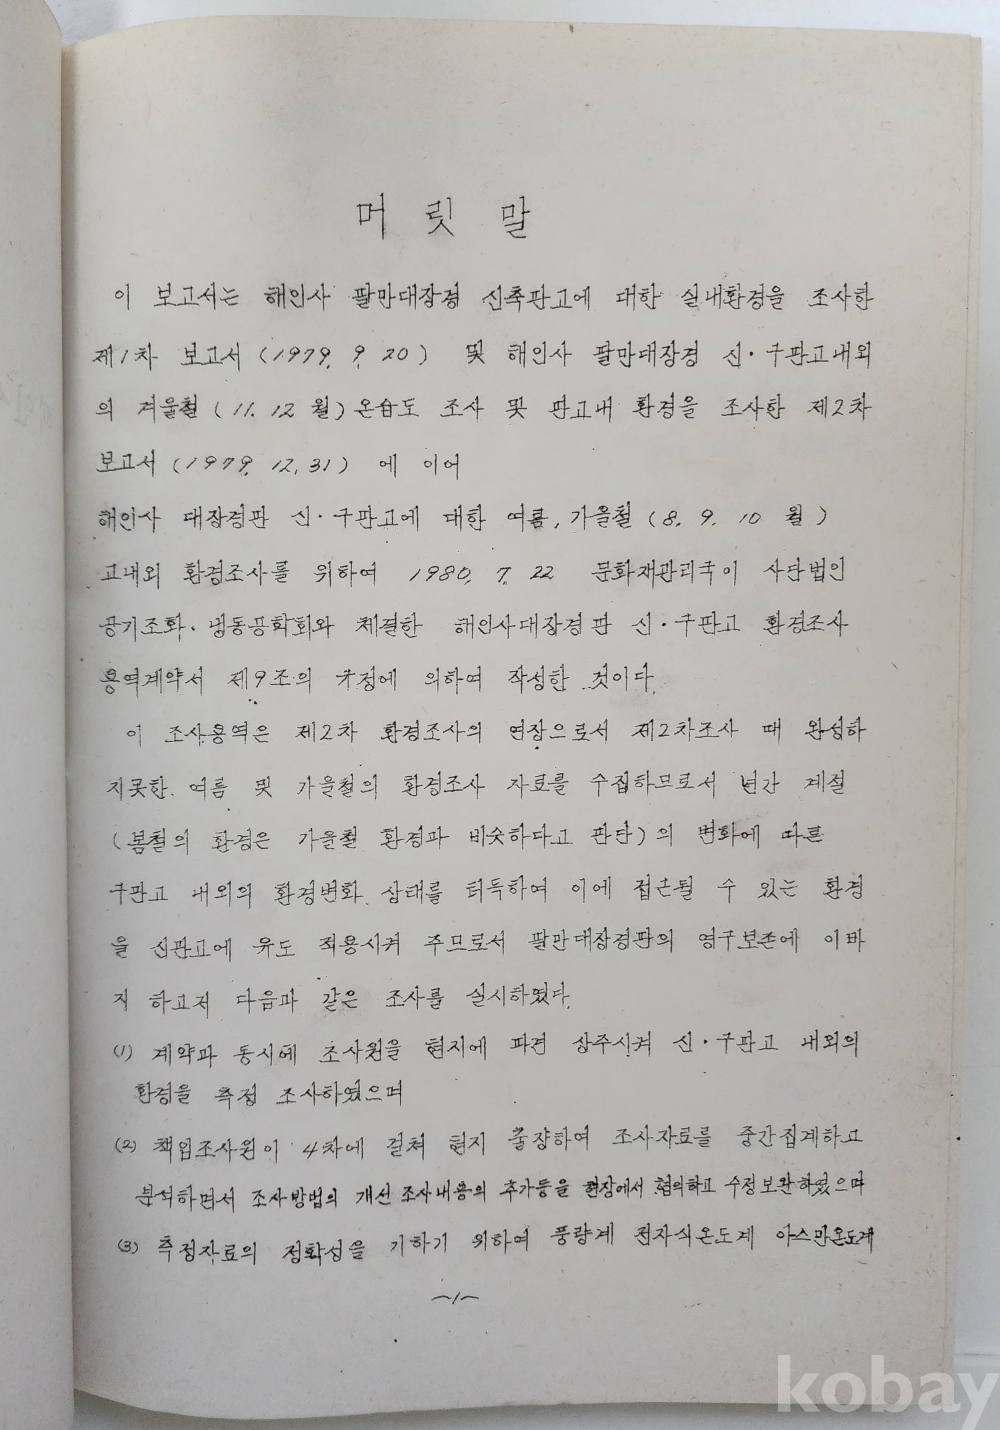 머릿말
이 보고서는 해인사 팔만대장경 신축판고에 대한 실내환경을 조사한
제1차 보고서 (1979. 9. 20) 및 해인사 팔만대장경 신·구판고내외
의 겨울철 (11. 12 월) 온습도 조사 및 판고내 환경을 조사한 제2차
보고서 (1979. 12. 31) 에 이어
해인사 대장경판 신·구판고에 대한 여름, 가을철 (8. 9. 10 월)
고내외 환경조사를 위하여 1980. 7. 22 문화재관리국이 사단법인
공기조화·냉동공학회와 체결한 해인사대장경판 신·구판고 환경조사
용역계약서 제9조의 규정에 의하여 작성한 것이다.
이 조사용역은 제2차 환경조사의 연장으로서 제2차조사 때 완성하
지못한 여름 및 가을철의 환경조사 자료를 수집하므로서 년간 계절
(봄철의 환경은 가을철 환경과 비슷하다고 판단) 의 변화에 따른
구판고 내외의 환경변화 상태를 터득하여 이에 접근될 수 있는 환경
을 신판고에 유도 적용시켜 주므로서 팔만대장경판의 영구보존에 이바
지 하고저 다음과 같은 조사를 실시하였다.
(1) 계약과 동시에 조사원을 현지에 파견 상주시켜 신·구판고 내외의
환경을 측정 조사하였으며
(2) 책임조사원이 4차에 걸쳐 현지 출장하여 조사자료를 중간집계하고
분석하면서 조사방법의 개선 조사내용의 추가등을 현장에서 협의하고 수정보완하였으며
(3) 측정자료의 정확성을 기하기 위하여 풍량계 전자식온도계 아스만온도계
-1-
kobay